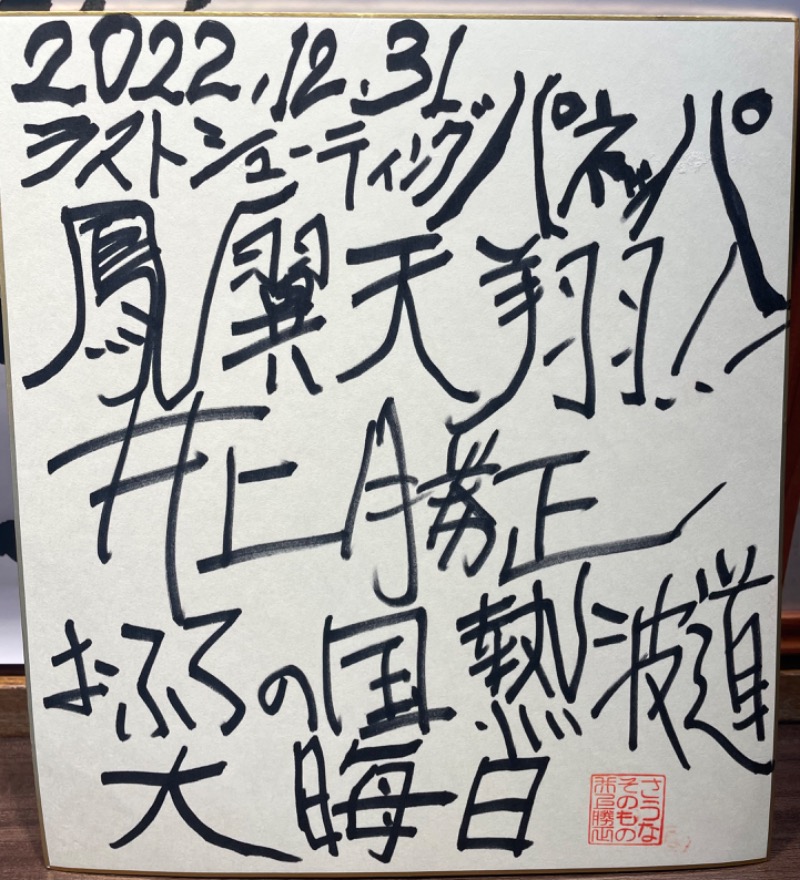 2022.12.31
ラストシューティングパネッパ
鳳翼天翔!!
井上勝正
おふろの国 熱波道
大晦日
さうな
そのもの
井上勝正